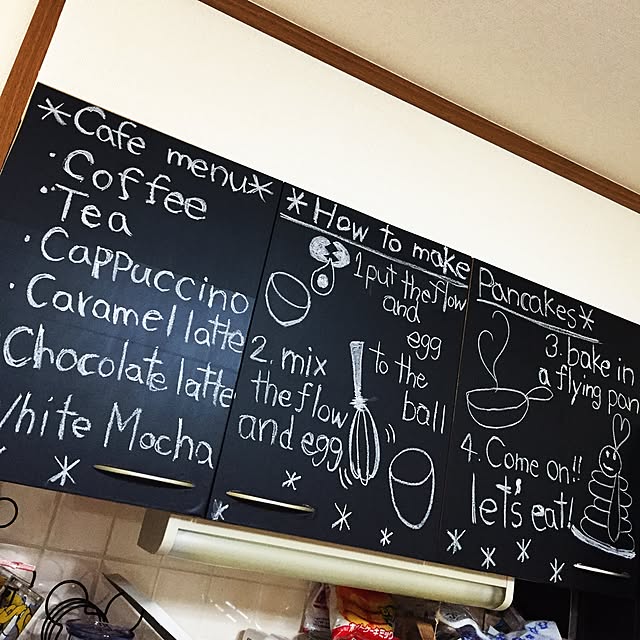 *Cafe menu*
・Coffee
・Tea
・Cappuccino
・Caramel latte
Chocolate latte
White Mocha
*How to make
Pancakes*
1 put the flow
and
egg
to the
ball
2. mix
the flow
and egg
3. bake in
a flying pan
4. Come on!!
let's eat!